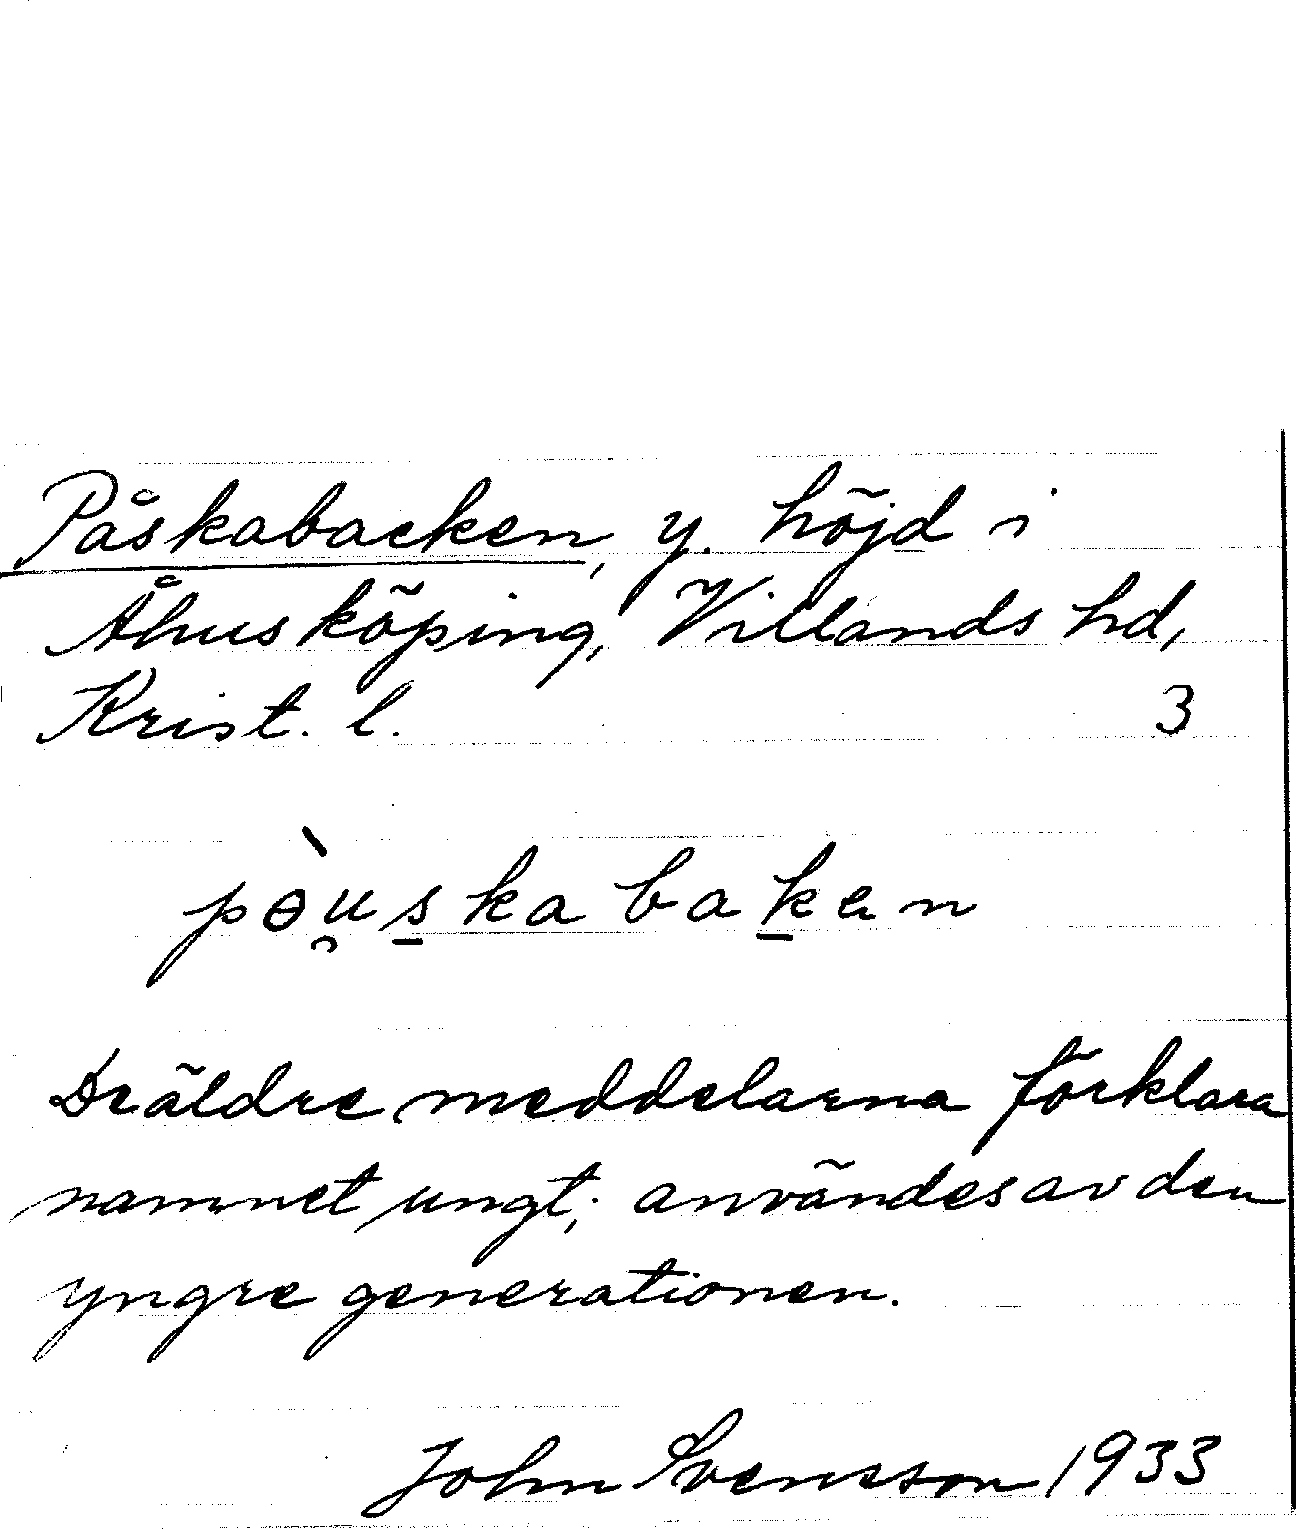 Påskabacken, y. höjd i
Åhus köping, Villands hd,
Krist. l. 3
pɵ̀u̯s̱kabaḵen
De äldre meddelarna förklara
namnet ungt; användes av den
yngre generationen.
John Svensson 1933